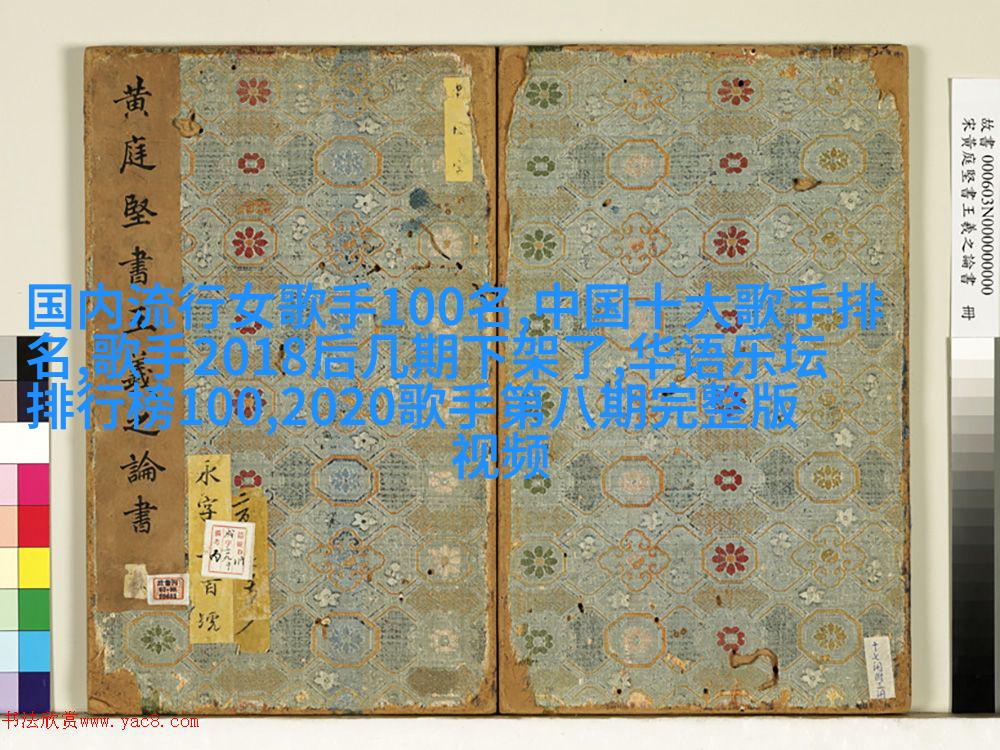 黄庭堅書王羲之論書
国内流行女歌手100名,中国十大歌手排
名,歌手2018后几期下架了,华语乐坛
排行榜100,2020歌手第八期完整版
视频
永字
百號
故書 000603N000000000
宋黄庭堅書王羲之論書 冊
书法欣赏www.yac8.com